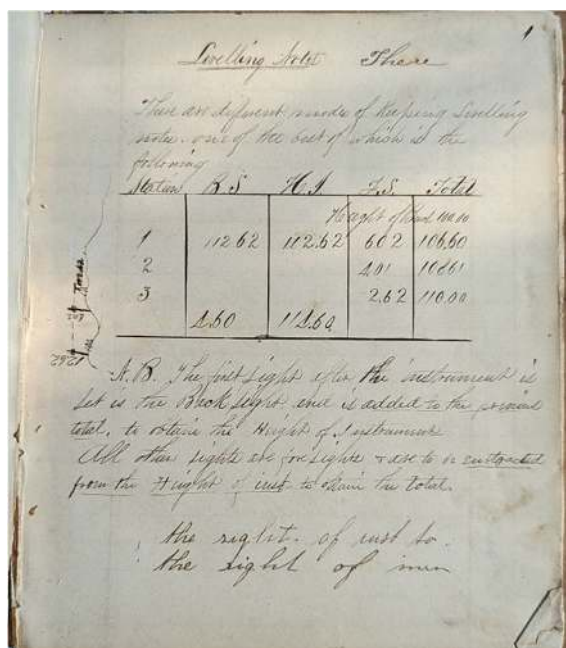 1
Levelling Notes There
There are different modes of Keeping Levelling
notes. one of the best of which is the
following
Station B.S H.I F.S. Total
Height of Bench 100.00
1 112.62 112.62 6.02 106.60
2 4.01 108.61
3 2.62 110.00
4.60 114.60
12.62
N.B. The first sight after the instrument is
set is the Back sight and is added to the
total, to obtain the Height of Instrument
All other sights are foresights & are to be
from the Height of inst to obtain the total.
the right. of inst to.
the right of men